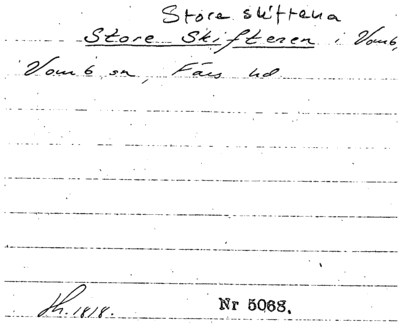 Store skiftena
Store Skifteren i Vomb,
Vomb sn, Färs hd
Lh. 1818.
Nr 5068.